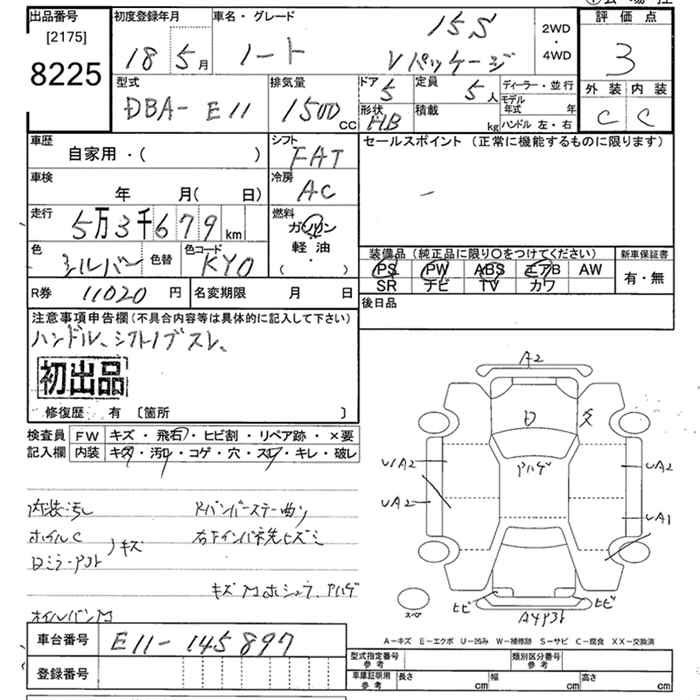 出品番号 [2175] 8225
初度登録年月 18年 5月
車名・グレード ノート 15S Vパッケージ
2WD・4WD
評価点 3
外装 C 内装 C
型式 DBA-E11
排気量 1500 CC
ドア 5
形状 HB
定員 5人
積載 kg
ディーラー・並行
モデル年式 年
ハンドル 左・右
車歴 自家用・( )
シフト FAT
セールスポイント (正常に機能するものに限ります)
ー
車検 年 月( 日)
冷房 AC
走行 5万3千679 km
燃料 ガソリン 軽油 ・ ( )
色 シルバー 色替
色コード KY0
装備品 (純正品に限り○をつけてください)
PS PW ABS エアB AW
SR ナビ TV カワ
新車保証書 有・無
R券 11020 円
名変期限 月 日
後日品
注意事項申告欄 (不具合内容等は具体的に記入して下さい)
ハンドル、シフトノブスレ、
初出品
修復歴 有 [箇所 ]
検査員記入欄
FW キズ・飛石・ヒビ割・リペア跡・×要
内装 キズ・汚れ・コゲ・穴・スレ・キレ・破レ
内装汚レ
ホイルC
ロミラーアト
キズ
Rバンパーステー曲り
右Fインパネ先ヒズミ
キズMホシュウ、アハゲ
オイルパンM
A2
アハゲ
UA2
UA2
UA2
UA1
ヒビ
ヒビ
スペア
A-キズ E-エクボ U-凹み W-補修跡 S-サビ C-腐食 XX-交換済
車台番号 E11-145897
登録番号
型式指定番号 参考
類別区分番号 参考
車庫証明用 参考 長さ cm 幅 cm 高さ cm